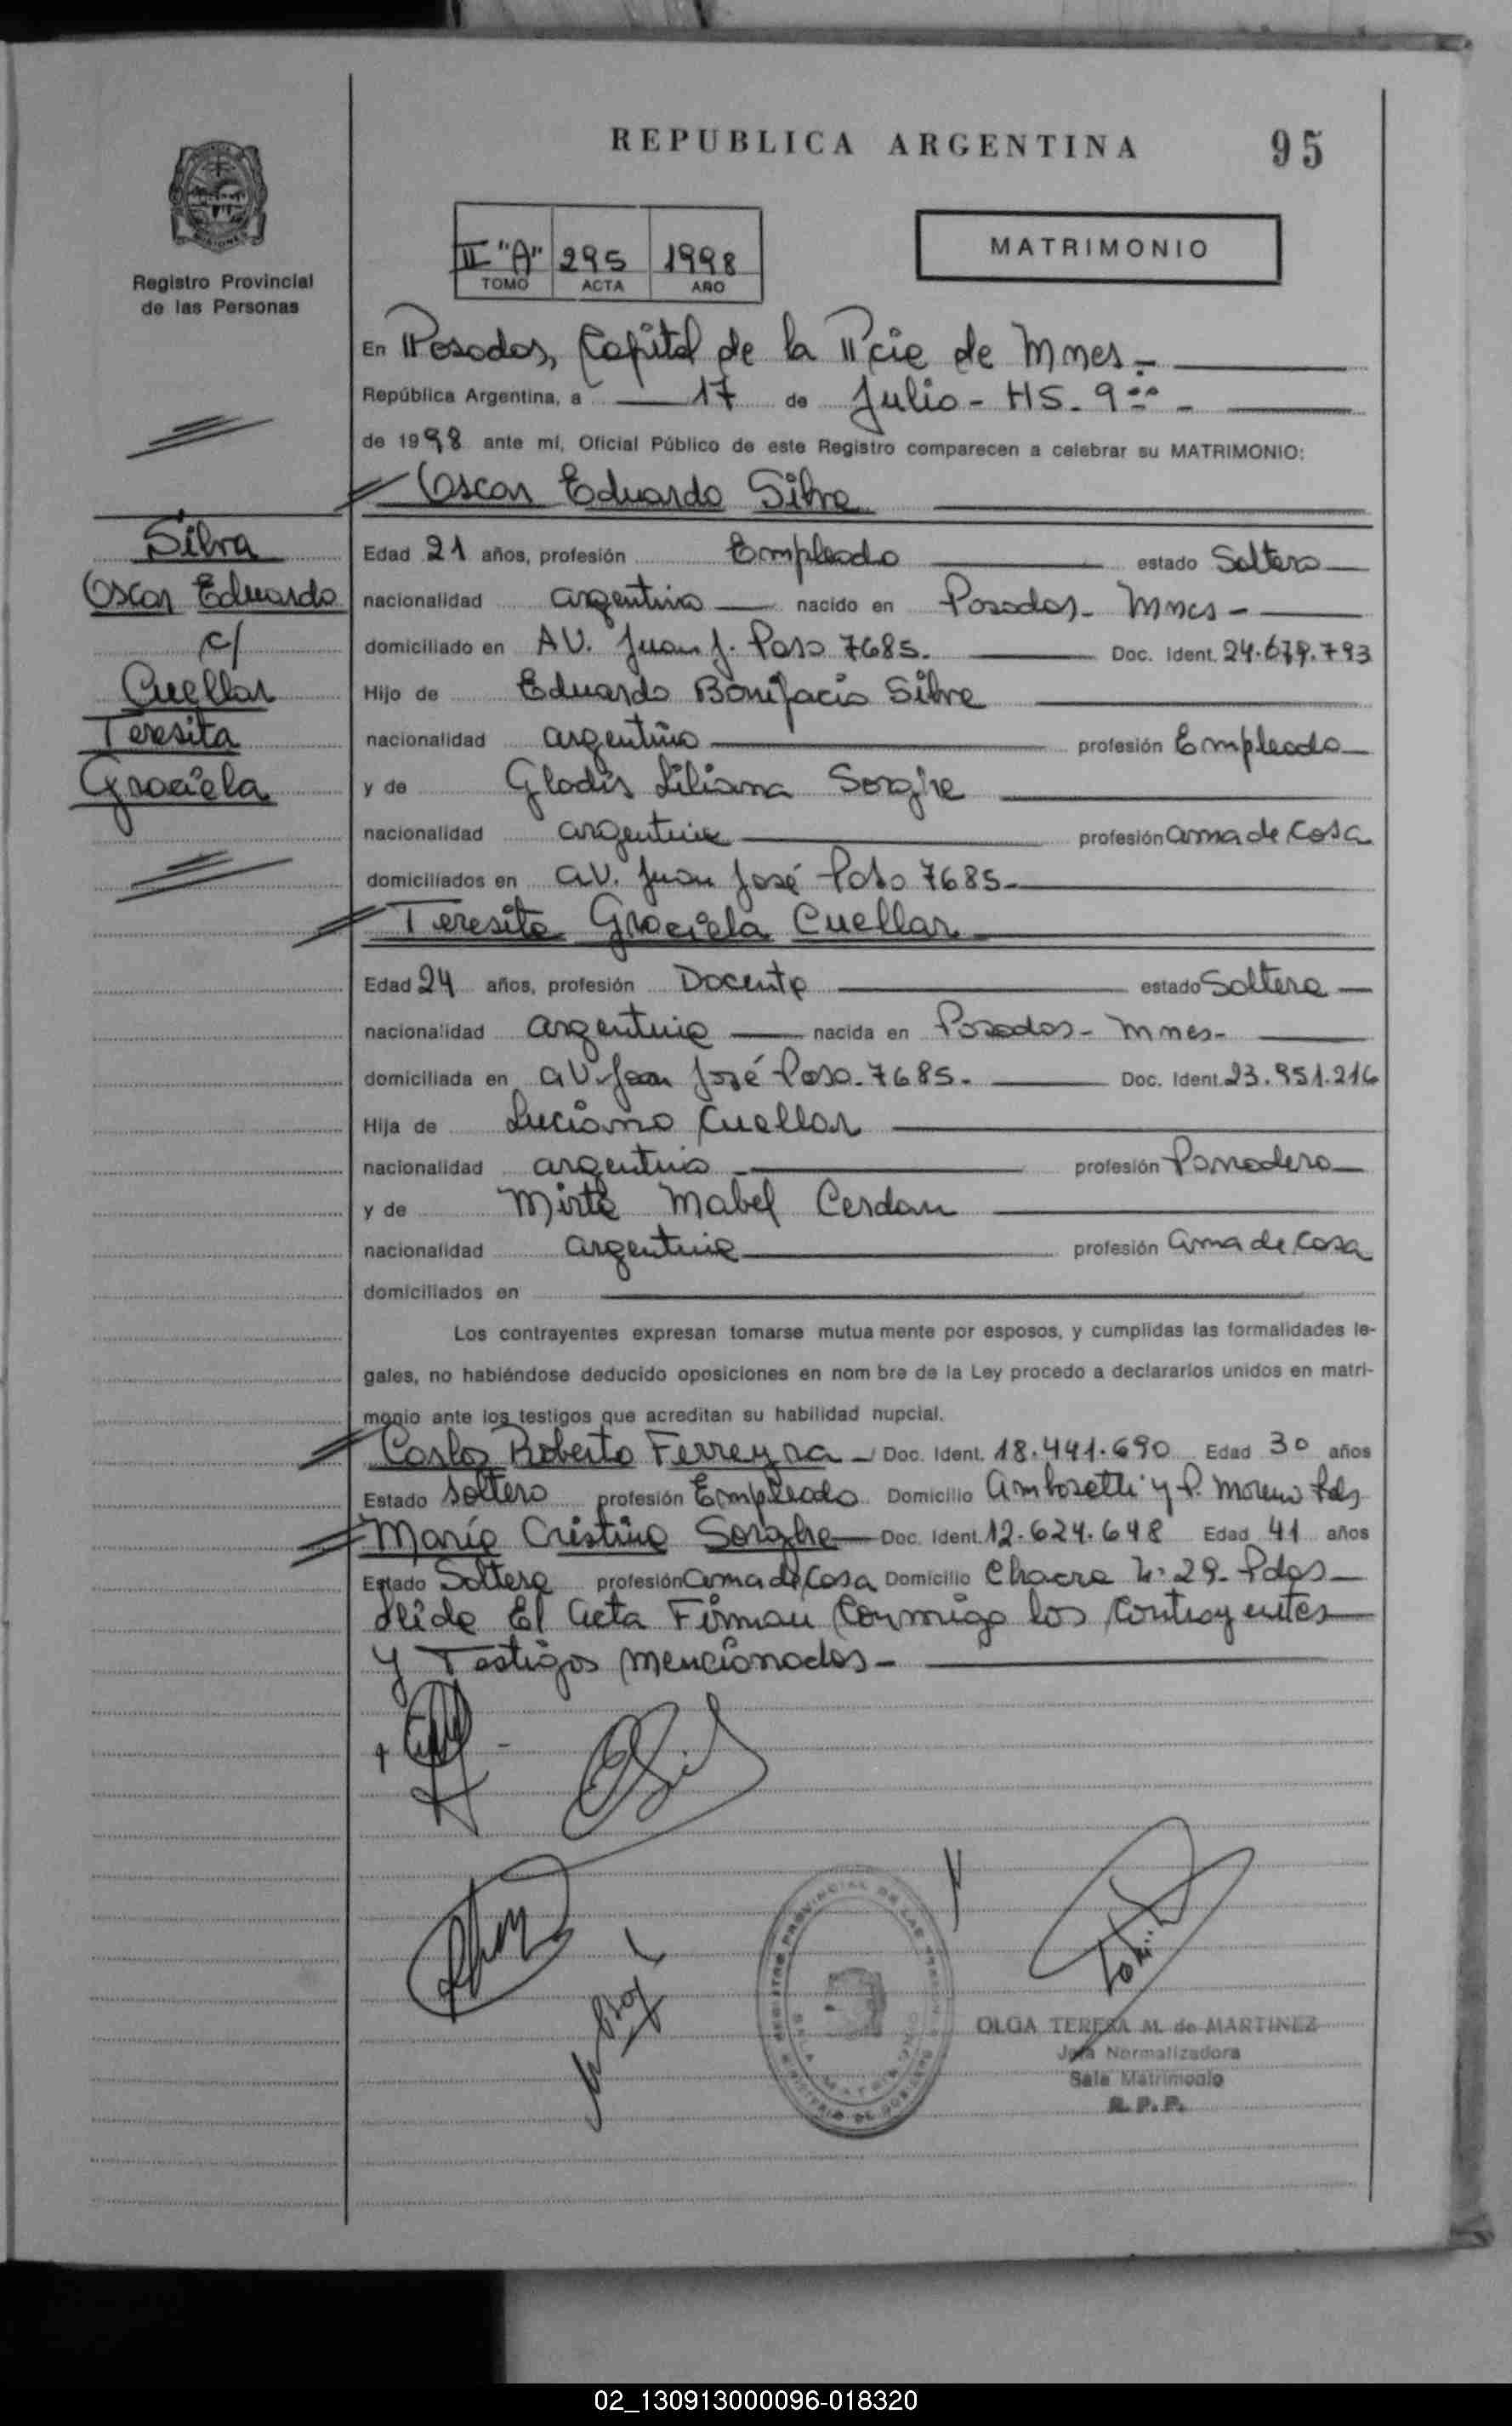 REPUBLICA ARGENTINA 95
Registro Provincial
de las Personas
II "A" 295 1998
TOMO ACTA AÑO
MATRIMONIO
En Posadas, Capital de la Pcie de Mnes.-
República Argentina, a 17 de Julio - HS. 9 -
de 1998 ante mí, Oficial Público de este Registro comparecen a celebrar su MATRIMONIO:
Oscar Eduardo Silva
Silva
Oscar Eduardo
c/
Cuellar
Teresita
Graciela
Edad 21 años, profesión Empleado estado Soltero
nacionalidad argentino nacido en Posadas - Mnes -
domiciliado en AV. Juan J. Paso 7685. Doc. Ident. 24.679.793
Hijo de Eduardo Bonifacio Silva
nacionalidad argentino profesión Empleado
y de Gladis Liliana Sorghe
nacionalidad argentina profesión ama de Casa
domiciliados en AV. Juan José Paso 7685-
Teresita Graciela Cuellar
Edad 24 años, profesión Docente estado Soltera
nacionalidad argentina nacida en Posadas - Mnes-
domiciliada en AV. Juan José Paso - 7685 - Doc. Ident. 23.951.216
Hija de Luciano Cuellar
nacionalidad argentino profesión Panadero
y de Mirta Mabel Cerdan
nacionalidad argentina profesión ama de Casa
domiciliados en
Los contrayentes expresan tomarse mutua mente por esposos, y cumplidas las formalidades le-
gales, no habiéndose deducido oposiciones en nom bre de la Ley procedo a declararlos unidos en matri-
monio ante los testigos que acreditan su habilidad nupcial.
Carlos Roberto Ferreyra - Doc. Ident. 18.441.690 Edad 30 años
Estado Soltero profesión Empleado Domicilio Ambosetti y P. Moreno Pds
María Cristina Sorghe Doc. Ident. 12.624.648 Edad 41 años
Estado Soltera profesión ama de Casa Domicilio Chacra N: 29- Pdas-
leida El acta Firman Conmigo los Contrayentes
y Testigos mencionados -
OLGA TERESA M. de MARTINEZ
Jefa Normalizadora
Sala Matrimonio
R. P. P.
02_130913000096-018320